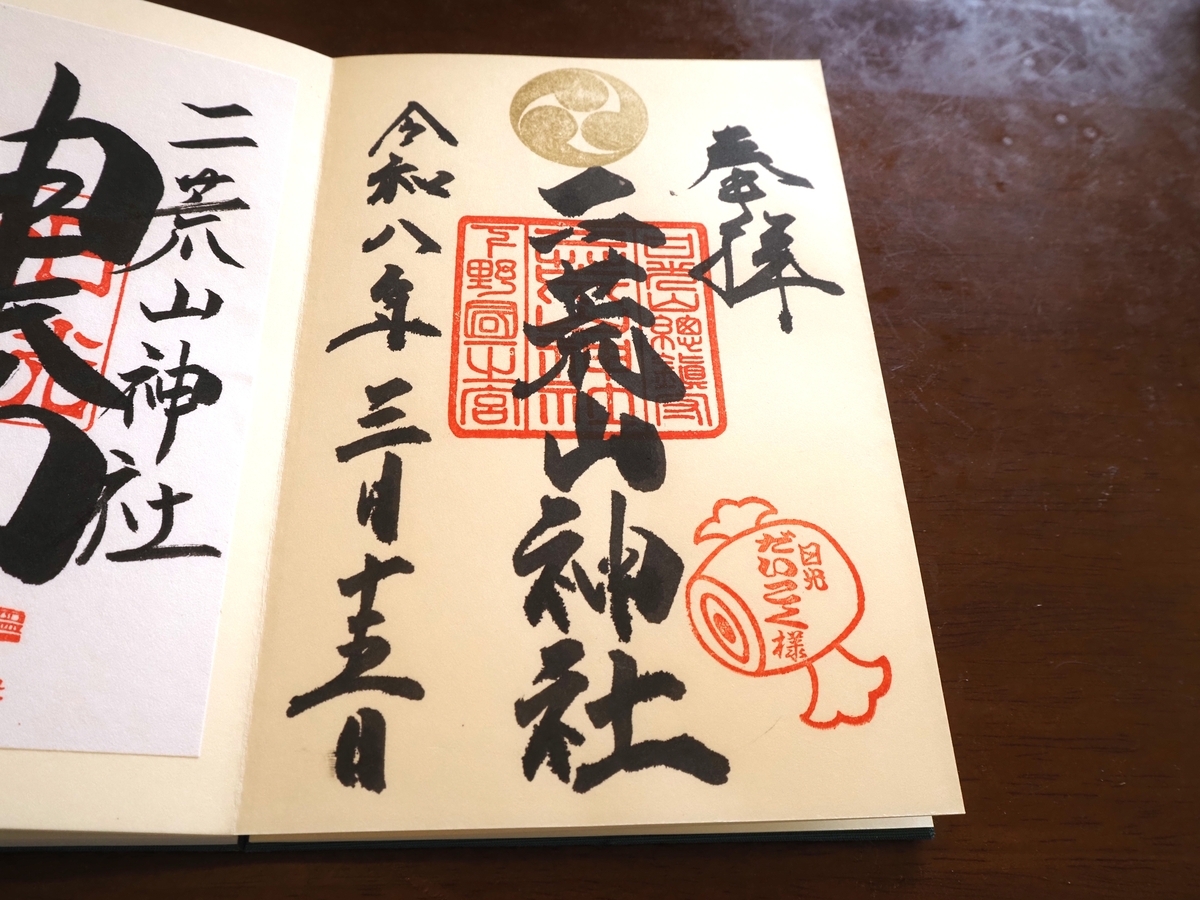 奉拝
二荒山神社
令和八年三月十五日
日光山總鎮守
下野國一之宮
日光
だいこく様
二荒山神社